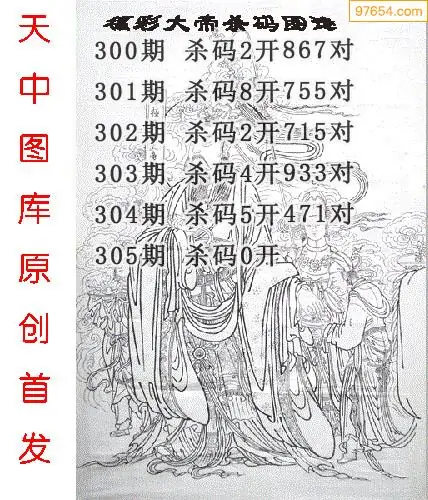 97654.com
福彩大帝杀码图迷
300期 杀码2开867对
301期 杀码8开755对
302期 杀码2开715对
303期 杀码4开933对
304期 杀码5开471对
305期 杀码0开
天中图库原创首发